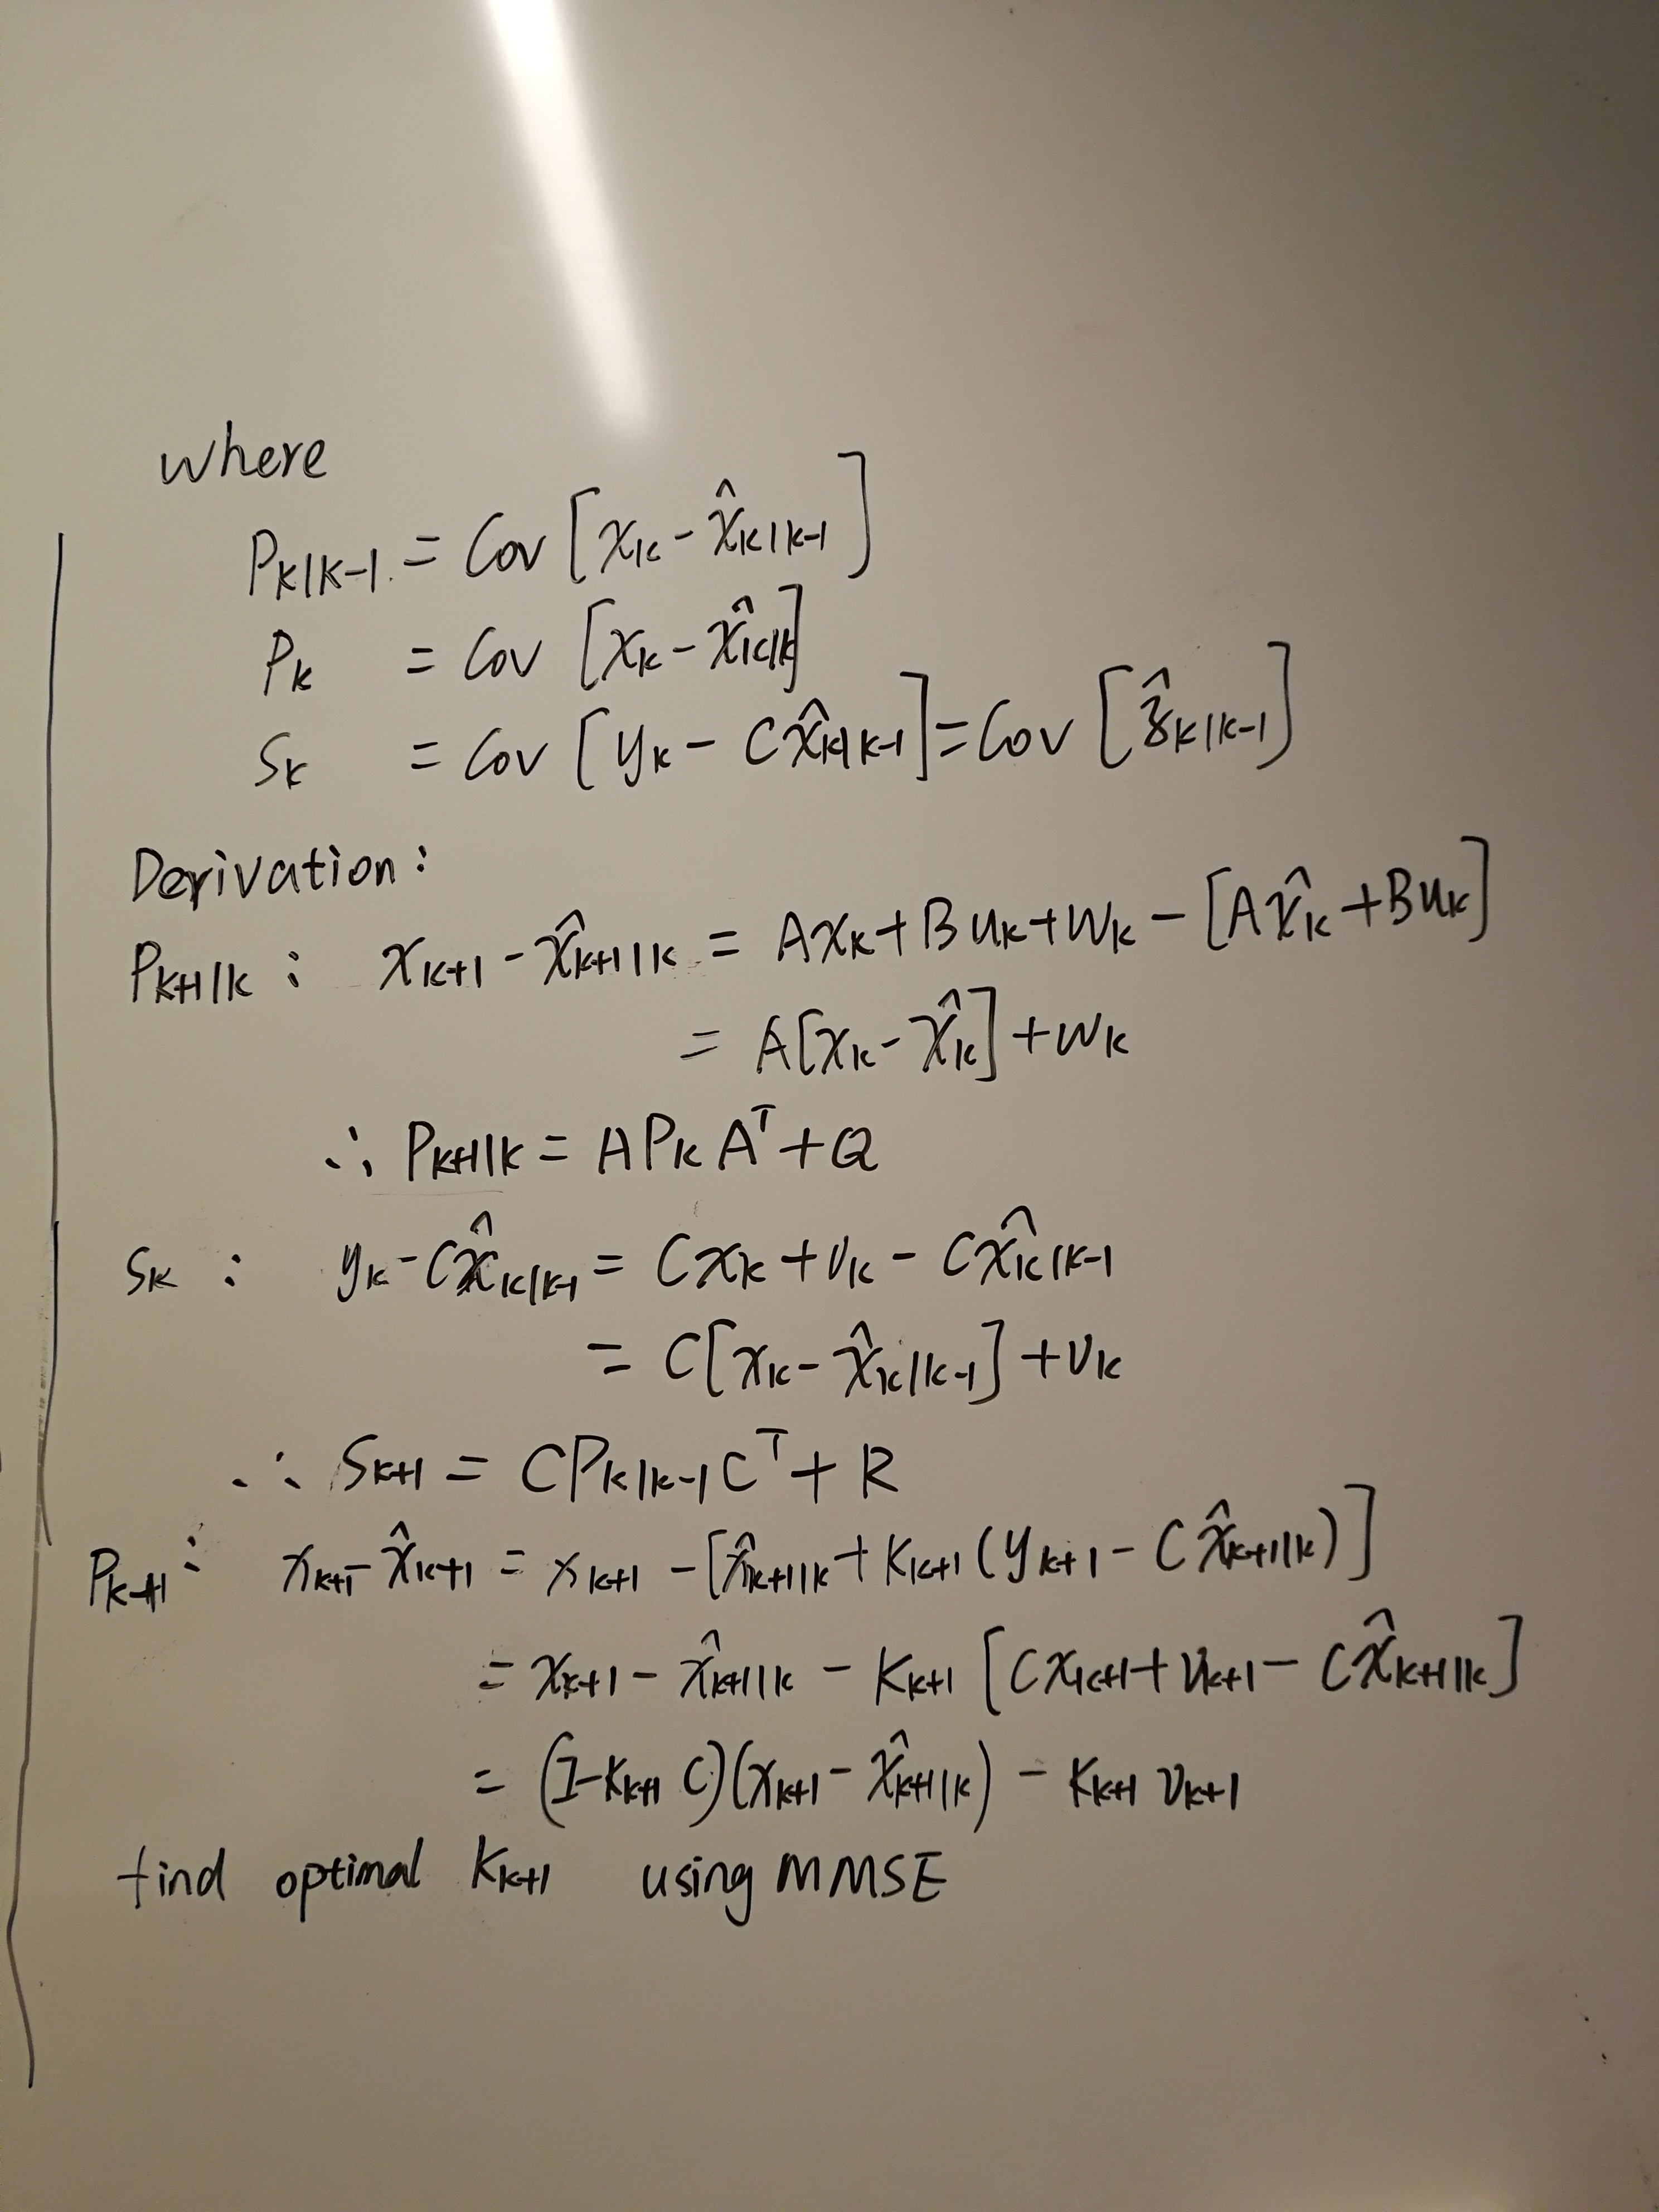 where
P_{k|k-1} = Cov [x_k - x̂_{k|k-1}]
P_k = Cov [x_k - x̂_{k|k}]
S_k = Cov [y_k - C x̂_{k|k-1}] = Cov [ẑ_{k|k-1}]
Derivation:
P_{k+1|k} : x_{k+1} - x̂_{k+1|k} = A x_k + B u_k + w_k - [A x̂_k + B u_k]
= A[x_k - x̂_k] + w_k
∴ P_{k+1|k} = A P_k A^T + Q
S_k : y_k - C x̂_{k|k-1} = C x_k + v_k - C x̂_{k|k-1}
= C[x_k - x̂_{k|k-1}] + v_k
∴ S_{k+1} = C P_{k|k-1} C^T + R
P_{k+1} : x_{k+1} - x̂_{k+1} = x_{k+1} - [x̂_{k+1|k} + K_{k+1} (y_{k+1} - C x̂_{k+1|k})]
= x_{k+1} - x̂_{k+1|k} - K_{k+1} [C x_{k+1} + v_{k+1} - C x̂_{k+1|k}]
= (I - K_{k+1} C)(x_{k+1} - x̂_{k+1|k}) - K_{k+1} v_{k+1}
find optimal K_{k+1} using MMSE